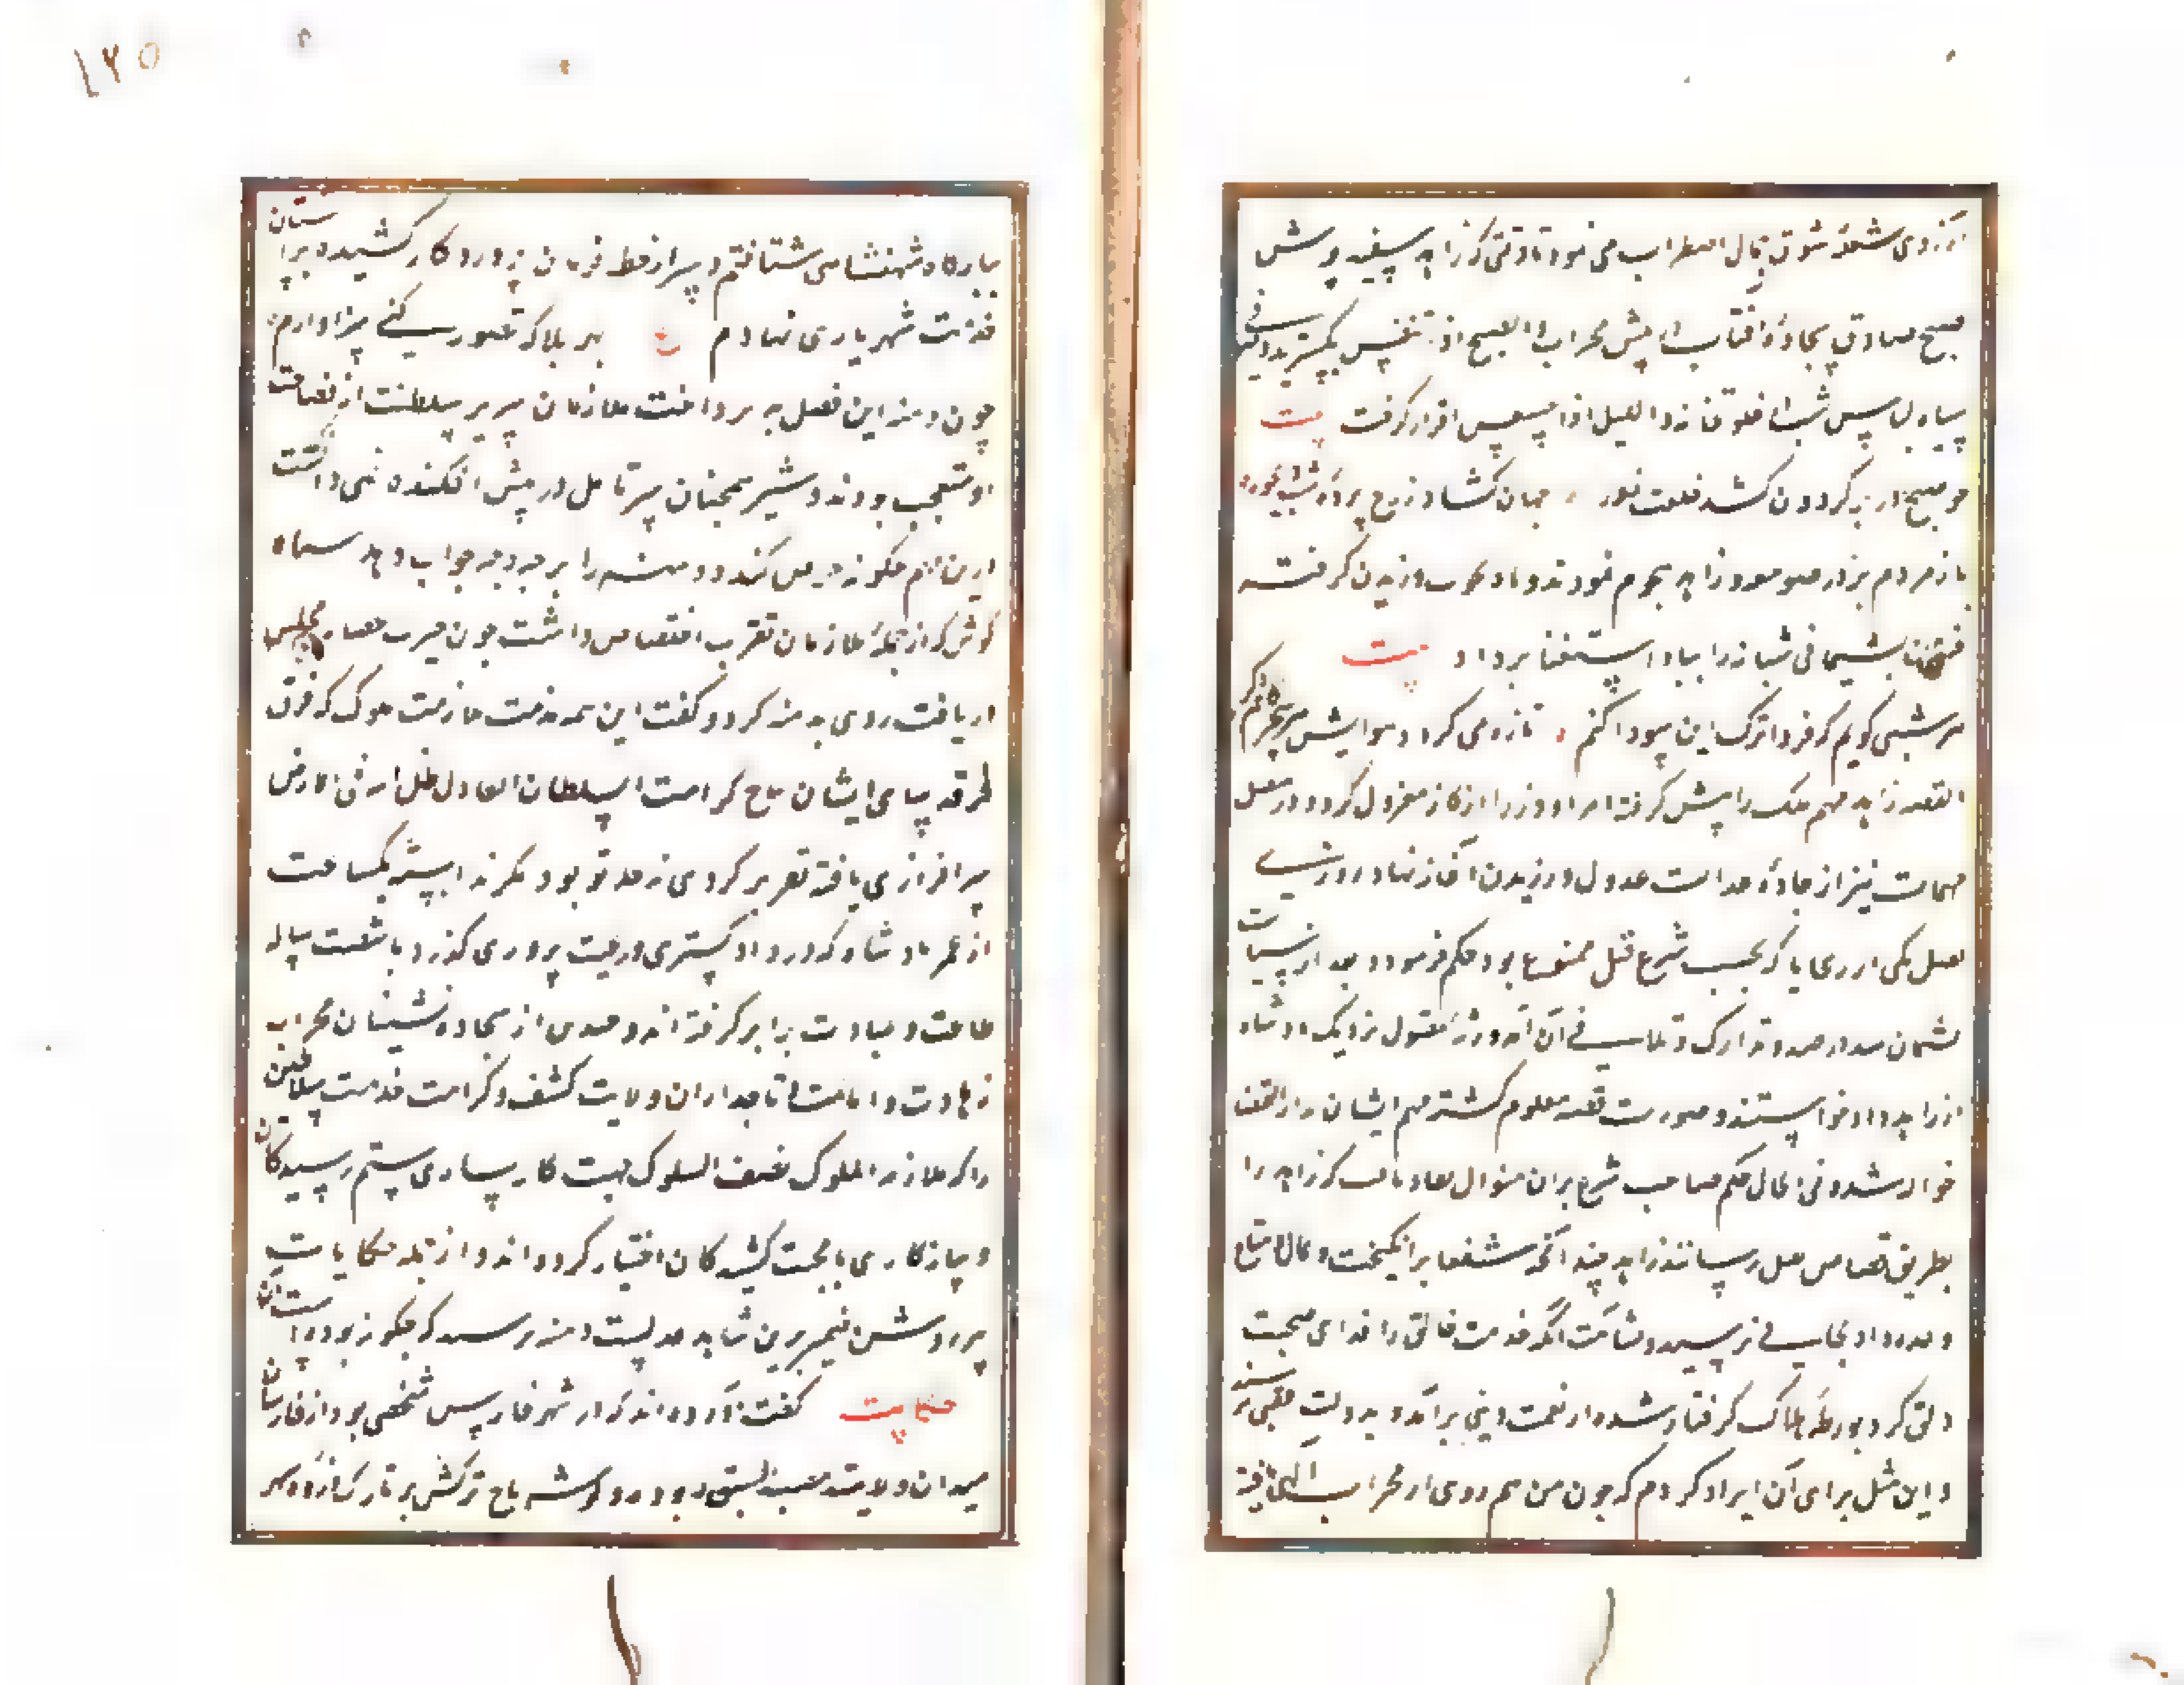 آرزوی شعلهٔ شوق بال اضطراب می نمود تا وقتی که زاهد سپیدپوش
صبح صادق سجادهٔ آفتاب را پیش محراب والصبح اذا تنفس بگسترید و صوفی
سیاه لباس شب را خلوتخانه واللیل اذا عسعس قرار گرفت بیت
چو صبح در بر گردون کشید خلعت نور جهان گشاد ز رخ پردهٔ شب دیجور
باز مردم بر در صومعه زاهد هجوم نمودند و باد گرفته
پشیمانی شبانه را بباد استغنا برداد بیت
هر شبی گویم که فردا ترک این سودا کنم تازه می گردد هوایش هر سحرگاهم دگر
القصه زاهد مهم ملک را پیش گرفته امرا و وزرا را از کار معزول کرد و در فصل
مهمات نیز از جادهٔ عدالت عدول ورزیدن آغاز نهاد و روزی
بقتل یکی از رعایا که بحسب شرع قتل ممنوع بود حکم فرمود و بعد از سیاست
پشیمان شده در صدد تدارک و تلافی آن آمد ورثهٔ مقتول نزدیک پادشاه
از زاهد داد خواستند و صورت قصه معلوم گشته مهم ایشان بدار القضا
حواله شد و فی الحال حکم صاحب شرع بران منوال که زاهد را
بطریق قصاص بقتل رسانند زاهد چندانکه شفعا برانگیخت و مال و متاع
وعده داد بجایی نرسید و بشامت آنکه خدمت خالق را فدای صحبت
خلق کرد بورطهٔ هلاک گرفتار شده از نعمت دینی برآمد و بدولت عقبی نرسید
و این مثل برای آن ایراد کردم که چون من هم روی از محراب الهی تافته
ببارگاه شهنشاهی شتافتم و سر از خط فرمان پروردگار کشیده بر آستان
خدمت شهریاری نهادم بیت بهر بلا که تصور کنی سزاوارم
چون دمنه این فصل بپرداخت ملازمان سریر سلطنت از فصاحت
او متعجب بودند و شیر همچنان سر تأمل در پیش افکنده نمی دانست
در این مهم چگونه خوض کند و دمنه را بر چه وجه جواب دهد سیاه
گوش که از جمله ملازمان تقرب اختصاص داشت چون حیرت حضار مجلس
دریافت روی بدمنه کرد و گفت این همه مذمت ملازمت ملوک که فرق
فرقد سای ایشان بتاج کرامت السلطان العادل ظل الله فی الارض
سرافرازی یافته تقریر کردی نه حد تو بود مگر ندانسته یکساعت
از عمر پادشاه که در دادگستری و رعیت پروری گذرد با شصت ساله
طاعت و عبادت برابر گرفته اند و صدی از سجاده نشینان محراب
زهادت و امامت تاجداران ولایت کشف و کرامت خدمت سلاطین
را که ملازمه الملوک نصف السلوک جهت کارسازی ستم رسیدگان
و چاره کاری محنت کشیدگان اختیار کرده اند و از جمله حکایات
پیر روشن ضمیر برین شاهد عدلست دمنه پرسید که چگونه بوده است آن
حکایت گفت آورده اند که در شهر فارس شخصی بود از فارسان
میدان ولایت بوده و گوشه تاج ترکش بر تارک
۱۲۵